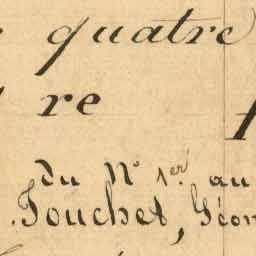 quatre
re
du N° 1er au
Fouchet, Géom